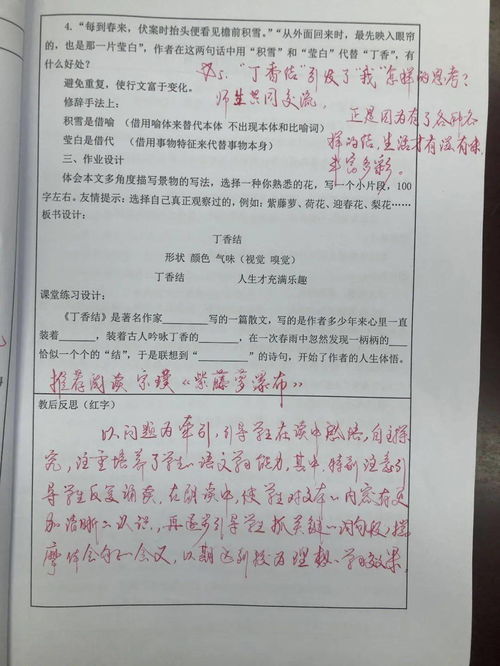 4. “每到春来，伏案时抬头便看见檐前积雪。”“从外面回来时，最先映入眼帘
的，也是那一片莹白”，作者在这两句话中用“积雪”和“莹白”代替“丁香”，有
什么好处？
5. “丁香结”引发了“我”怎样的思考？
避免重复，使行文富于变化。
师生共同交流，
修辞手法上：
正是因为有了各种各
积雪是借喻 （借用喻体来代替本体 不出现本体和比喻词）
样的结，生活才有滋有味
莹白是借代 （借用事物特征来代替事物本身）
丰富多彩。
三、作业设计
体会本文多角度描写景物的写法，选择一种你熟悉的花，写一个小片段，100
字左右。友情提示：选择自己真正观察过的，例如：紫藤萝、荷花、迎春花、梨花……
板书设计：
丁香结
形状 颜色 气味（视觉 嗅觉）
丁香结 人生才充满乐趣
课堂练习设计：
《丁香结》是著名作家________写的一篇散文，写的是作者多少年来心里一直
装着______，装着古人吟咏丁香的________，在一次春雨中忽然发现一柄柄的____
恰似一个个的“结”，于是联想到“________”的诗句，开始了作者的人生体悟。
推荐阅读 宗璞《紫藤萝瀑布》
教后反思（红字）
以问题为牵引，引导学生在读中感悟，自主探
究，注重培养了学生语文学习能力，其中，特别注意引
导学生反复诵读，在朗读中，使学生对文本内容有更
加清晰的认识，再逐步引导学生抓关键词句段，揣
摩体会句子含义，以期达到较为理想的学习效果。